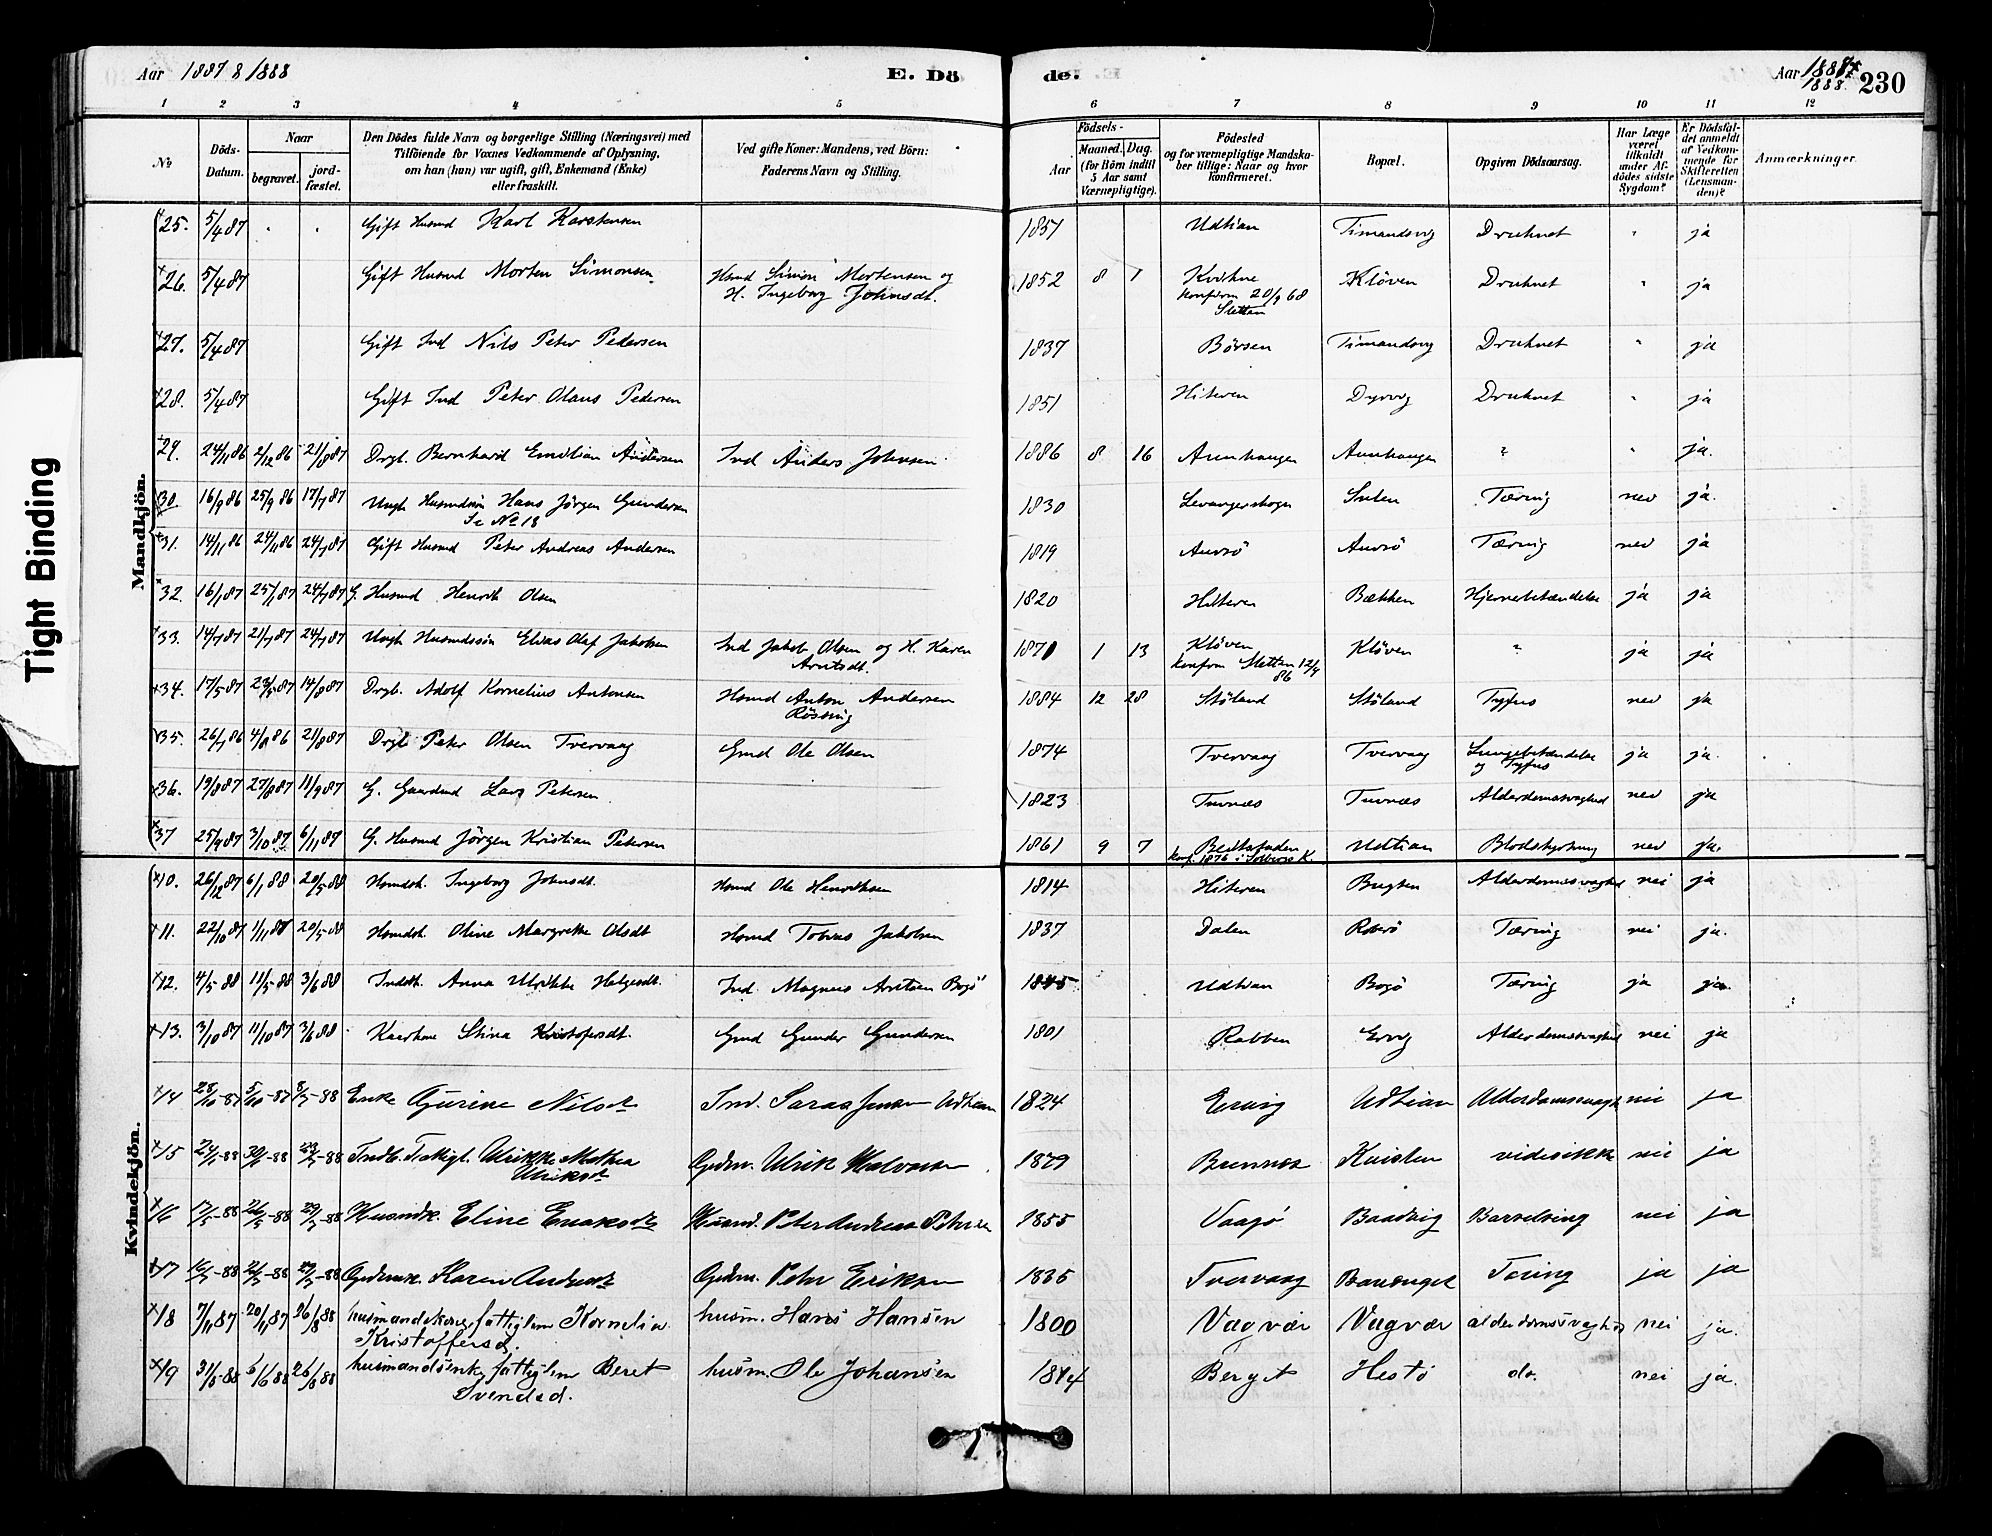 Tight Binding
Aar 1887 & 1888 E. Dö
1 2 3 4 5
№ Döds-Datum. Naar begravet. jord-fæstet. Den Dödes fulde Navn og borgerlige Stilling (Næringsvei) med Tilföiende for Voxnes Vedkommende af Oplysning, om han (hun) var ugift, gift, Enkemand (Enke) eller fraskilt. Ved gifte Koner: Mandens, ved Börn: Faderens Navn og Stilling.
de. Aar 1887 1888. 230
6 7 8 9 10 11 12
Födsels- Aar Maaned. Dag. (for Börn indtil 5 Aar samt Værnepligtige). Födested og for værnepligtige Mandskaber tillige: Naar og hvor konfirmeret. Bopæl. Opgiven Dödsaarsag. Har Læge været tilkaldt under Afdödes sidste Sygdom? Er Dödsfaldet anmeldt af Vedkommende for Skifteretten (Lensmanden)? Anmærkninger.
Mandkjön.
25. 5/4 87 Gift Husmd Karl Karstensen 1851 Udtian Timandsvig Druknet ja
26. 5/4 87 Gift Husmd Morten Simonsen Husmd Simon Mortensen og 1852 8 1 Kvihne Klöven Druknet ja
H. Ingeborg Johnsdt. konfirm 20/9 68
Sletten
27. 5/4 87 Gift Ind Nils Peter Pedersen 1837 Börsen Timandsvig Druknet ja
28. 5/4 87 Gift Ind Peter Olaus Pedersen 1851 Hiteren Dyrvig Druknet ja
29. 24/11 86 2/12 86 21/8 87 Drgb. Bernhard Emilian Andersen Ind Anders Johnsen 1886 8 16 Aunhaugen Aunhaugen " ja.
30. 16/9 86 25/9 86 17/7 87 Ungk Husmdsön Hans Jörgen Gundersen 1830 Levangerskogn Sulen Tæring nei ja.
Se No 18
31. 14/11 86 24/11 86 24/7 87 Gift Husmd Peter Andreas Andersen 1819 Auvsö Auvsö Tæring nei ja
32. 16/1 87 25/1 87 24/7 87 G. Husmd Henrik Olsen 1820 Hitteren Bækken Hjernebetændelse ja ja
33. 14/7 87 21/7 87 24/7 87 Ungk Husmdssön Elias Olaf Jakobsen Ind Jakob Olsen og H. Karen 1871 1 13 Klöven Klöven " ja ja
Arntsdt. konfirm Sletten 12/9
86
34. 17/5 87 23/5 87 14/8 87 Drgb. Adolf Kornelius Antonsen Husmd Anton Andersen 1884 12 28 Stöland Stöland Tyfus nei ja
Rösvig
35. 26/7 86 4/8 86 21/8 87 Drgb Peter Olsen Tvervaag Gmd Ole Olsen 1874 Tvervaag Tvervaag Lungebetændelse ja ja.
og Tyfus
36. 19/8 87 27/8 87 11/9 87 G. Gaardmd Lars Petersen 1823 Tuvnæs Tuvnæs Alderdomssvaghed nei ja
37 25/9 87 3/10 87 6/11 87 G. Husmd Jörgen Kristian Petersen 1861 9 7 Beitstaden Udtian Blodstyrtning nei ja.
konf. 1876 i Solbergs K.
Kvindekjön.
10. 26/12 87 6/1 88 20/5 88 Husmdsk. Ingeborg Johnsdt. Husmd Ole Henriksen 1814 Hiteren Bugten Alderdomssvaghed nei ja
11. 22/10 87 1/11 87 20/5 88 Husmdsk. Oline Margrethe Olsdt Husmd Tobias Jakobsen 1837 Dalen Roberö Tæring nei ja.
12. 4/5 88 11/5 88 3/6 88 Indstk. Anna Ulrikke Helgesdt. Ind. Magnus Arntsen Bogö 1845 Udtian Bogö Tæring ja ja.
13. 3/10 87 11/10 87 3/6 88 Kaarkone Stina Kristofersdt. Gmd Gunder Gundersen 1801 Rabben Ervig Alderdomssvaghed nei ja
14 28/10-87 5/11-87 8/7-88 Enke Gurine Nilsdt. Ind. Saras Jensen Udtian 1824 Ervig Udtian Alderdomssvagh nei ja
15 24/6-88 30/6-88 22/7-88 Indb. Fattigl. Ulrikke Mathea Gdm. Ulrik Halvorsen 1879 Brennes Kvisten vides ikke nei ja
Ulriksdt.
16 17/5-88 26/5-88 29/7-88 Husmdk. Eline Enoksdt. Husmd. Peter Andreas Petersen 1855 Vaagö Baadvig Barselseng nei ja
17 16/7-88 21/7-88 29/7-88 Gdmk. Karen Andersdt. Gdm. Peter Eriksen 1835 Tvervaag Bausnget Tæring ja ja
18 7/11 87 20/11 87 26/8 88 husmandskone, fattiglem Kornelia husm. Hans Hansen 1800 Vagvær Vagvær alderdomssvaghed nei ja.
Kristoffersd.
19 31/5-88 6/6 88 26/8 88 husmandsenke, fattiglem Beret husm. Ole Johansen 1814 Berget Hestö do. nei ja.
Svendsd.